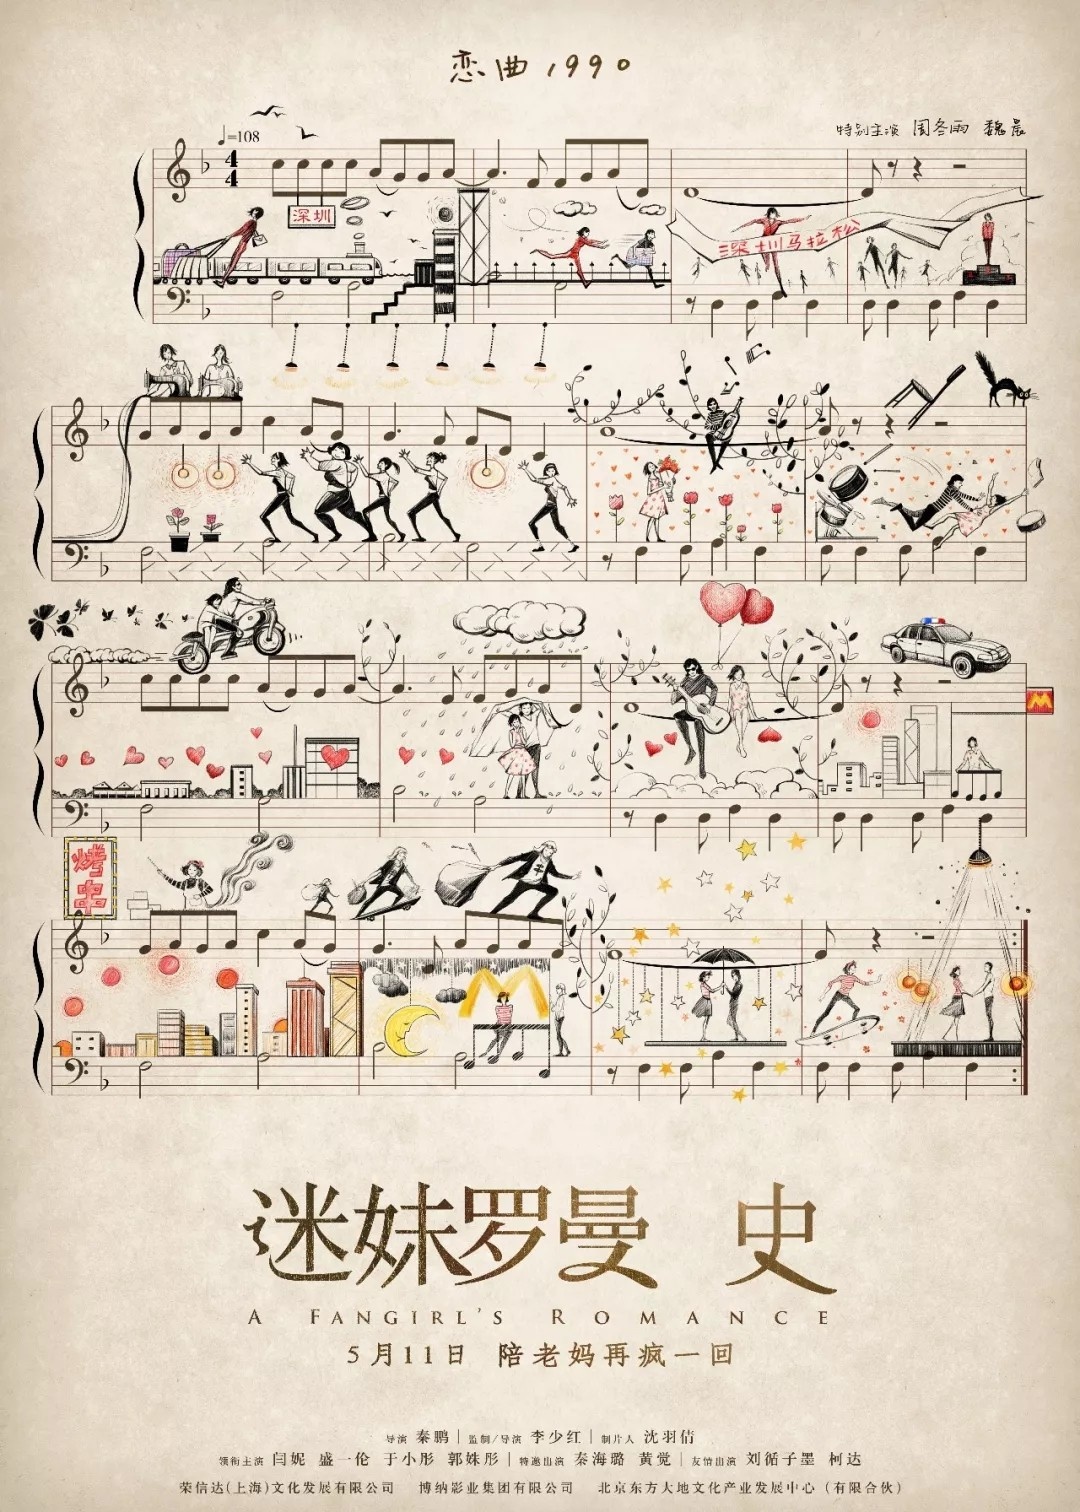 恋曲1990
♩=108
特别主演 周冬雨 魏晨
4
4
深圳
深圳马拉松
M
烤串
M
迷妹罗曼 史
A FANGIRL'S ROMANCE
5月11日 陪老妈再疯一回
导演 秦鹏 | 监制/导演 李少红 | 制片人 沈羽倩
领衔主演 闫妮 盛一伦 于小彤 郭姝彤 | 特邀出演 秦海璐 黄觉 | 友情出演 刘循子墨 柯达
荣信达(上海)文化发展有限公司 博纳影业集团有限公司 北京东方大地文化产业发展中心（有限合伙）